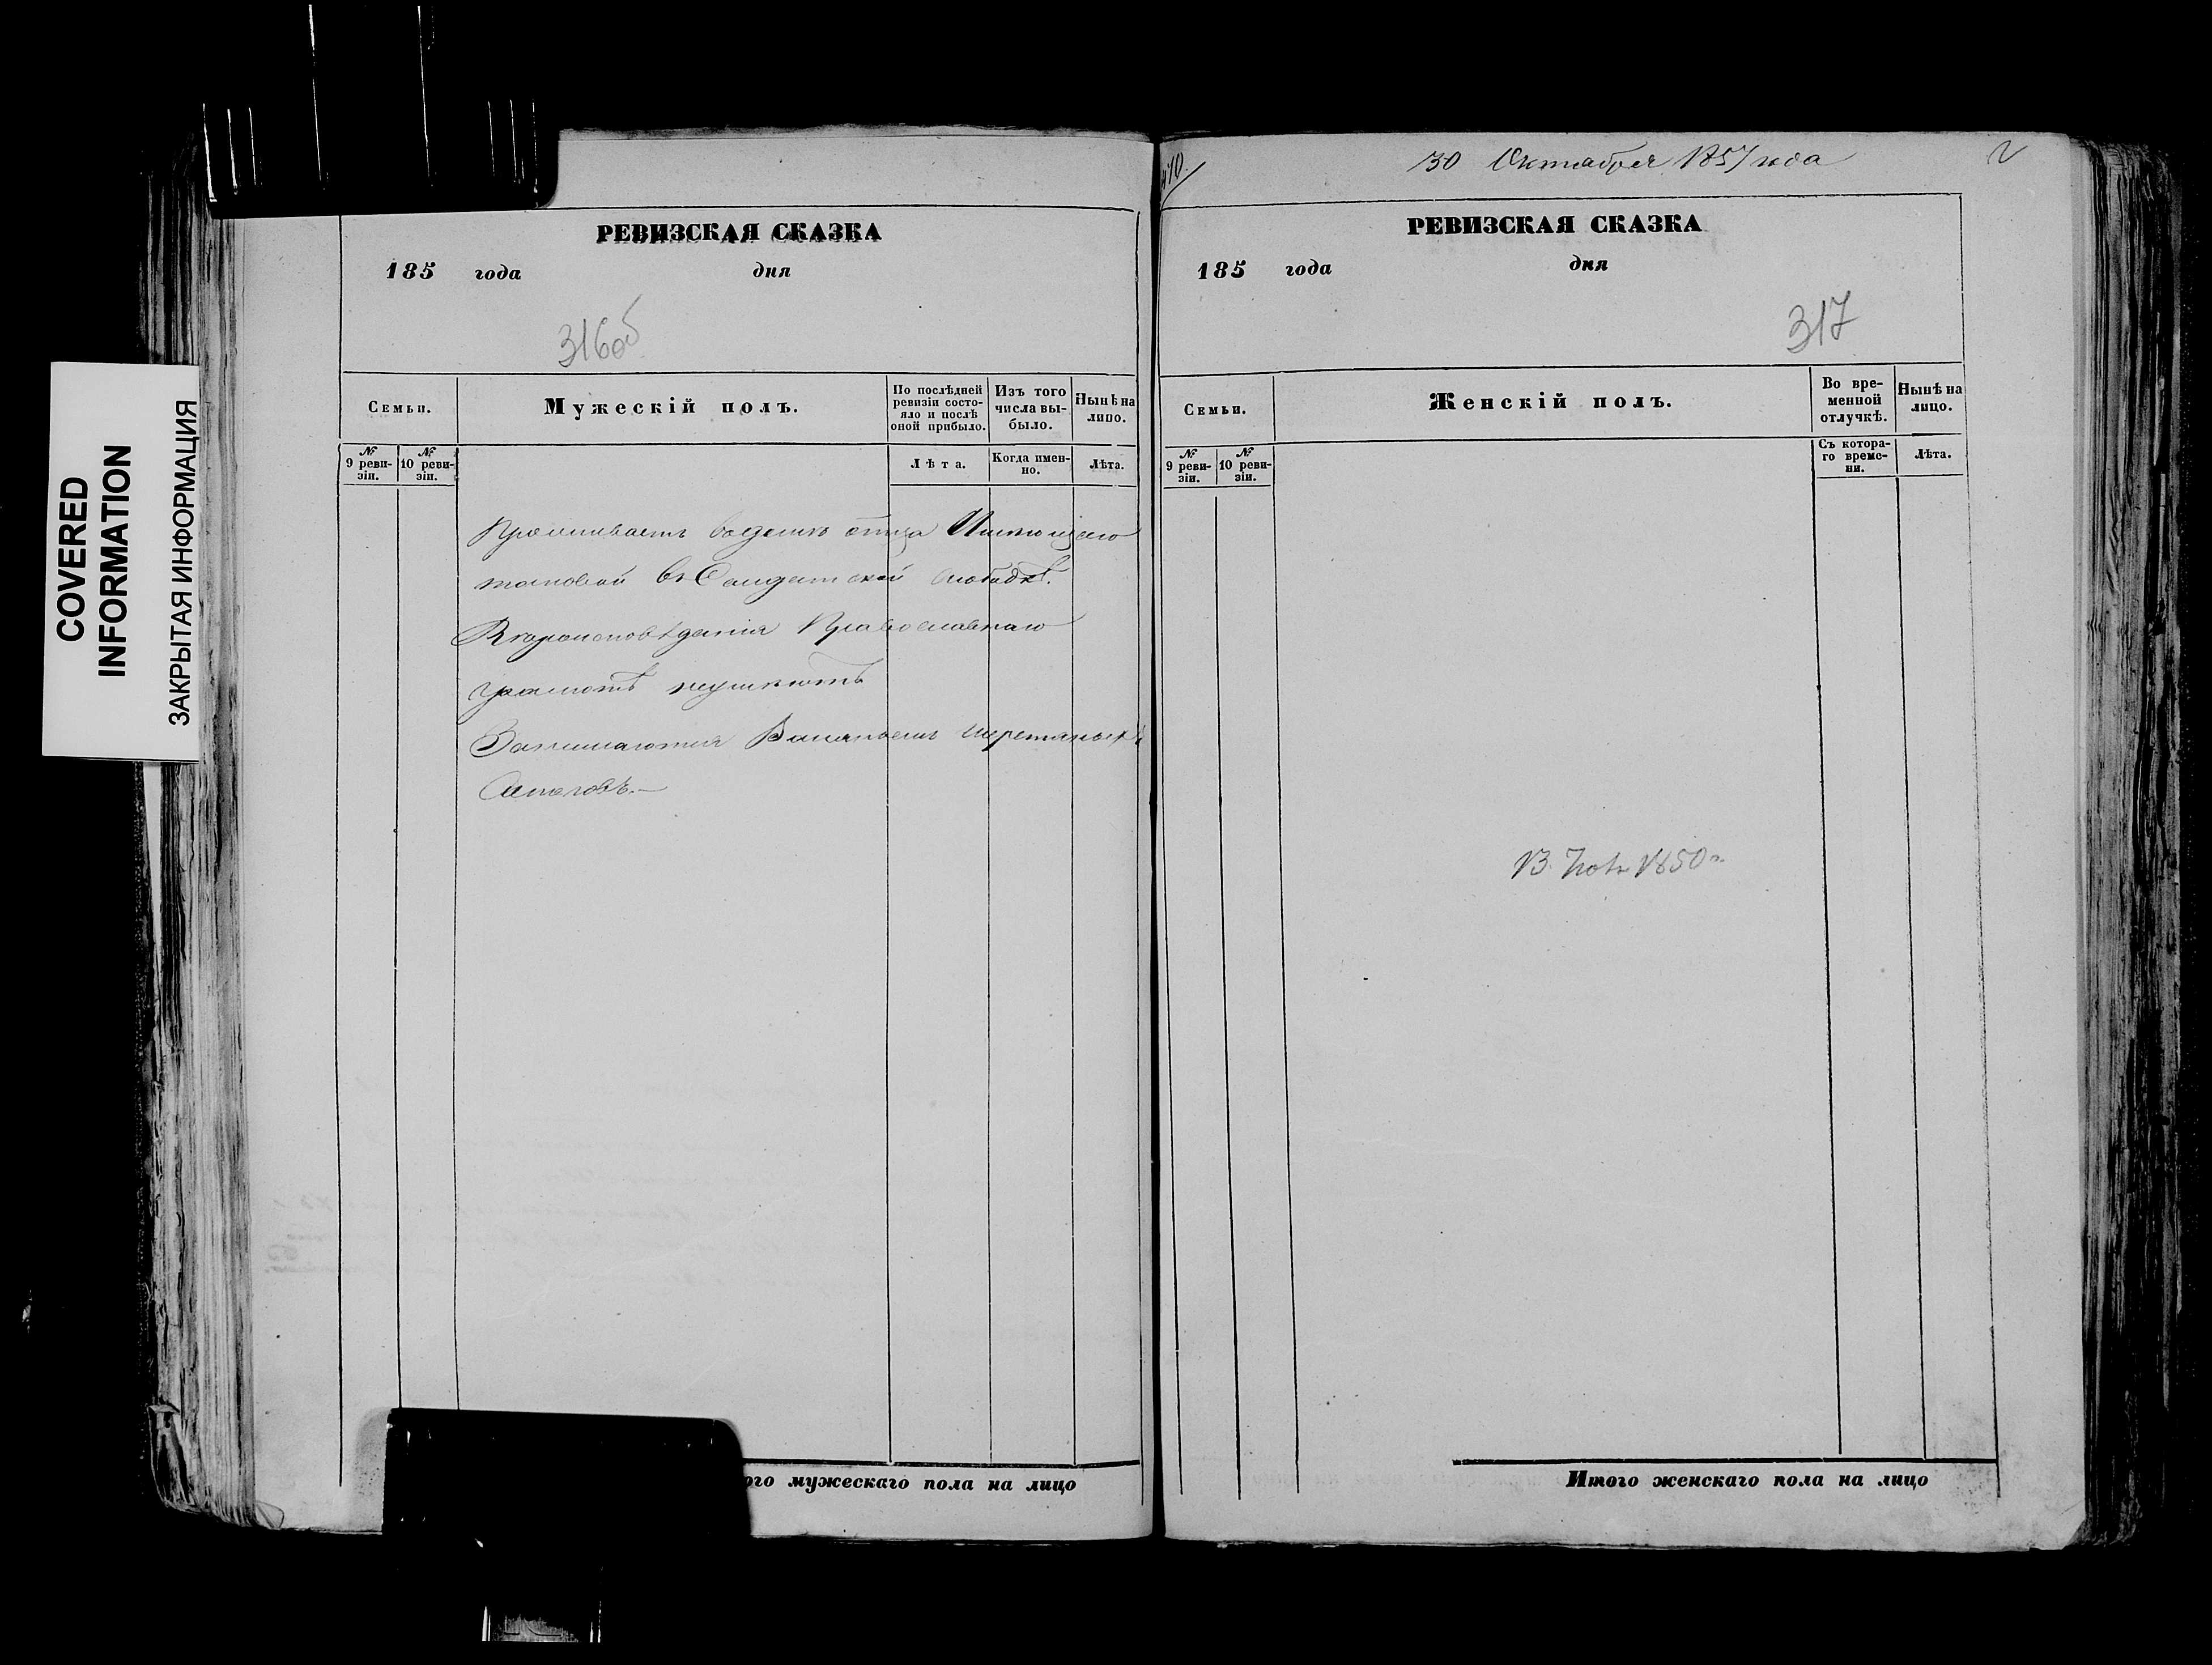 COVERED
INFORMATION
ЗАКРЫТАЯ ИНФОРМАЦИЯ
РЕВИЗСКАЯ СКАЗКА
185 года дня
316об
Семьи.
Мужескій полъ.
По послѣдней ревизіи состо-
яло и послѣ
оной прибыло.
Изъ того
числа вы-
было.
Нынѣ на
лицо.
№
9 реви-
зіи.
№
10 реви-
зіи.
Лѣта.
Когда имен-
но.
Лѣта.
Проживаетъ въ домѣ отца Имѣющаго
таковой въ Солдатской слободкѣ.
Вѣроисповѣданія Православнаго
грамотѣ неумѣютъ
Занимаются Валяньемъ шерстяныхъ
Сапоговъ.—
ого мужескаго пола на лицо
30 Октября 1857 года
РЕВИЗСКАЯ СКАЗКА
185 года дня
317
Семьи.
Женскій полъ.
Во вре-
менной
отлучкѣ.
Нынѣ на
лицо.
№
9 реви-
зіи.
№
10 реви-
зіи.
Съ котора-
го време-
ни.
Лѣта.
1850
Итого женскаго пола на лицо